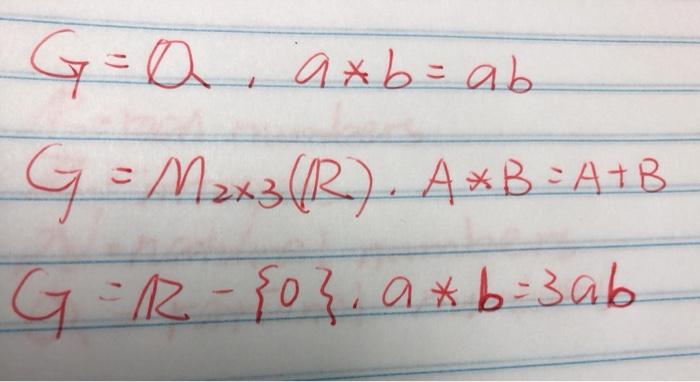 G = Q, a * b = ab
G = M₂ₓ₃(ℝ). A * B = A + B
G = ℝ - {0}. a * b = 3ab